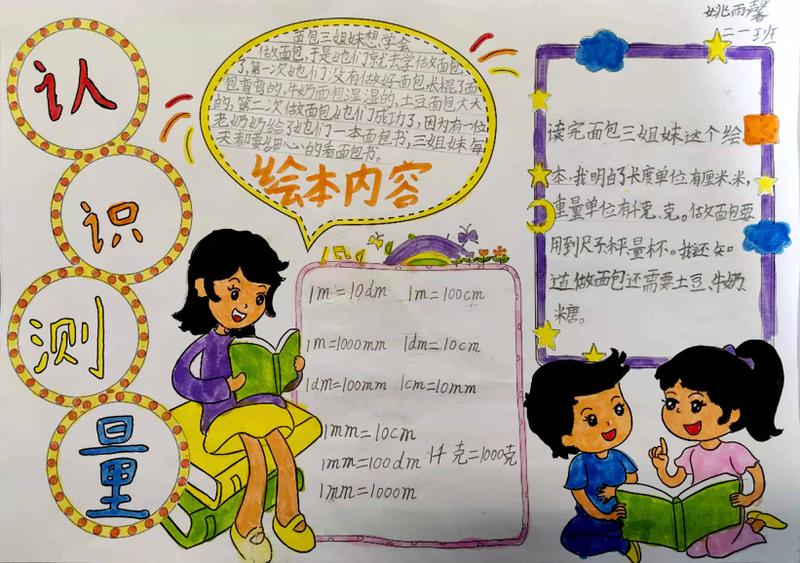 认
识
测
量
面包三姐妹想学会
做面包,于是她们就去学做面包
了,第一次她们没有做好面包,米棍了面
包弯弯的,牛奶面包湿湿的,土豆面包大大
的,第二次做面包她们成功了,因为有一位
老奶奶给了她们一本面包书,三姐妹每
天都要细心的看面包书。
绘本内容
1m=10dm 1m=100cm
1m=1000mm 1dm=10cm
1dm=100mm 1cm=10mm
1mm=10cm
1mm=100dm 1千克=1000克
1mm=1000m
姚雨馨
二一班
读完面包三姐妹这个绘
本:我明白了长度单位有厘米、米,
重量单位有千克、克。做面包要
用到尺子、秤、量杯。我还知
道做面包还需要土豆、牛奶、
糖。